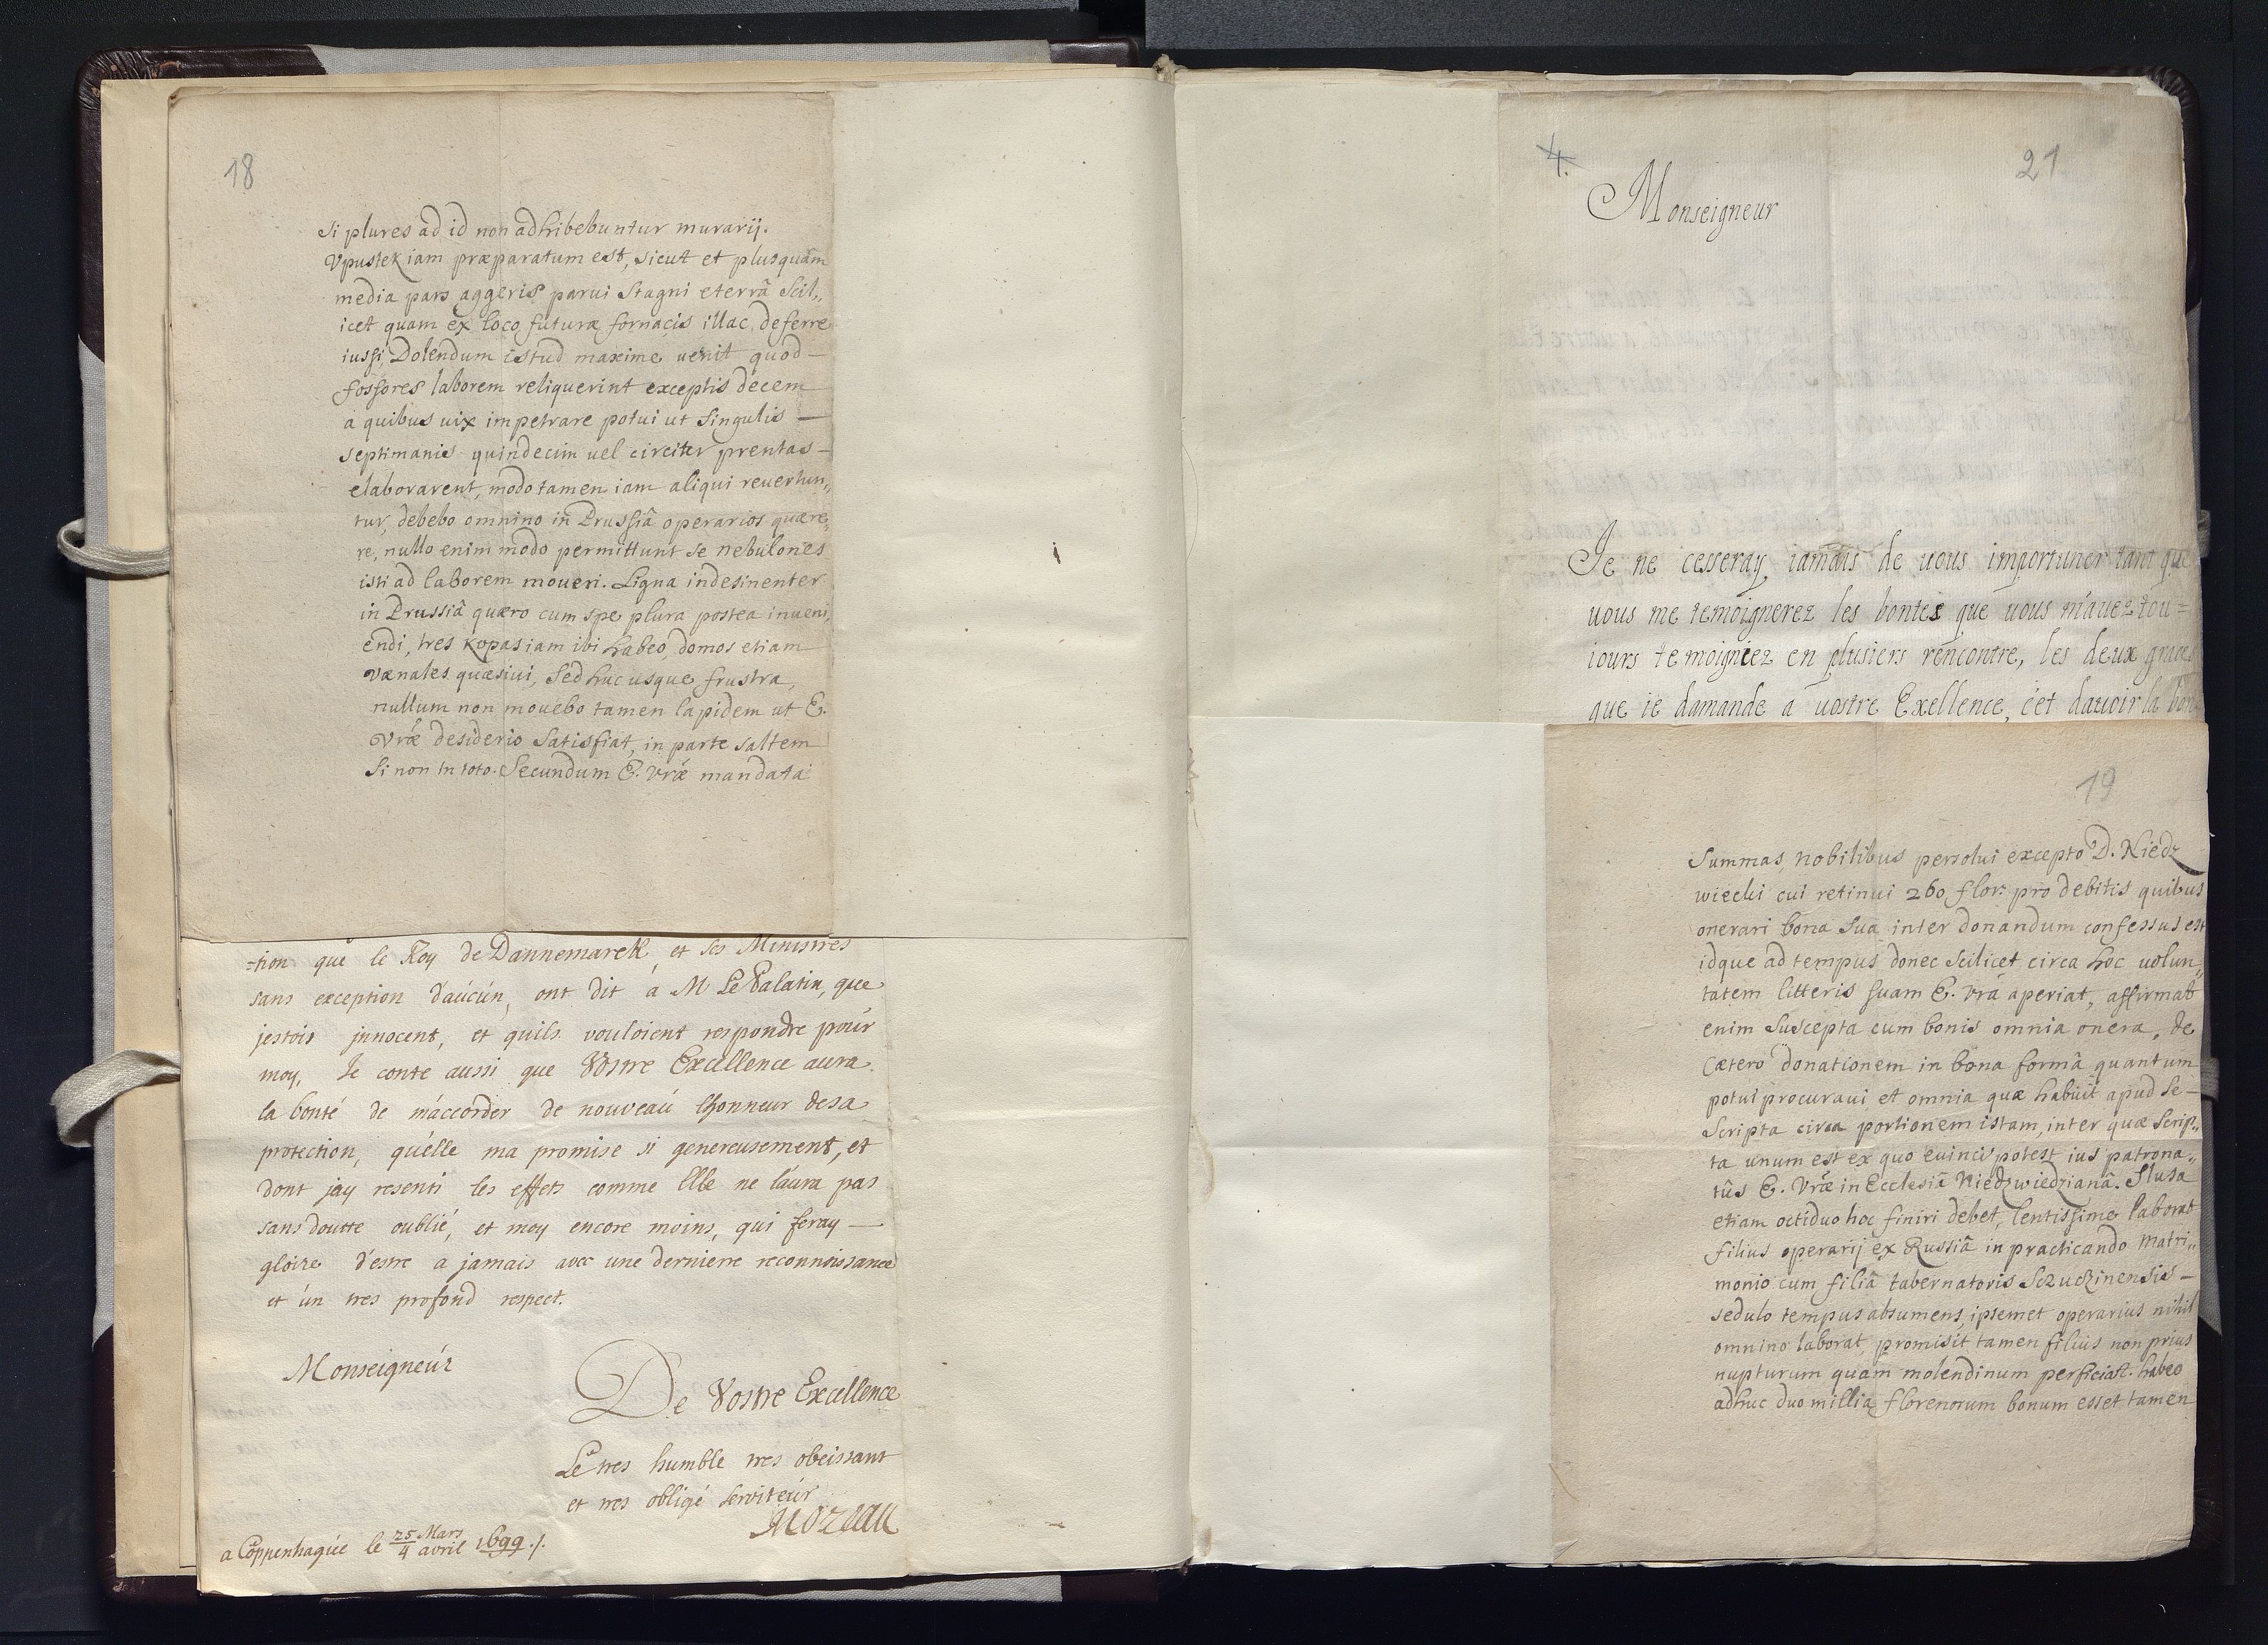 18
Si plures ad id non adhibebuntur murarij.
Vpustek iam præparatum est, sicut et plusquàm
media pars aggeris parui Stagni eterrâ Scil„
icet quam ex loco futuræ fornacis illac deferre
iussi, Dolendum istud maxime uenit quod—
fossores laborem reliquerint exceptis decem
a quibus uix impetrare potui ut Singulis —
septimanis quindecim uel circiter prentas—
elaborarent, modo tamen iam aliqui reuertun„
tur, debebo omnino in Prussiâ operarios quære„
re, nullo enim modo permittunt se nebulones
isti ad laborem moueri. Ligna indesinenter
in Prussiâ quæro cum spe plura postea inueni„
endi, tres kopas iam ibi habeo, domos etiam
vænales quæsiui, Sed huc usque frustra,
nullum non mouebo tamen lapidem ut E.
Vræ desiderio Satisfiat, in parte saltem
Si non in toto. Secundum E. Vræ mandata
=tion que le Roy de Dannemarck et ses Ministres
sans exception d'aúcún, ont dit a M Le Palatin, que
jestois jnnocent, et quils vouloient respondre poúr
moy, Je conte aussi que Vostre Excellence aura
la bonté de m'accorder de nouveaú lhonneur desa
protection, qu'elle ma promise si genereusement, et
dont jay resenti les effets comme Elle ne l'aura pas
sans doutte oublié, et moy encore moins, qui feray —
gloire d'estre a jamais avec une derniere reconnoissance
et ún tres profond respect.
Monseigneúr
De Vostre Excellence
Le tres humble tres obeissant
et tres obligé serviteúr
Moreau
a Coppenhagúe le 25 Mars / 4 avril 1699 ./.
4.
21
Monseigneur
Je ne cesseray iamais de uous importuner tant que
uous me temoignerez les bontes que uous m'auez tou=
iours temoigniez en plusiers rencontre, les deux graces
que ie damande a uostre Exellence, cét dauoir la
19
Summas nobilibus persolui excepto D. Niedz
wiecki cui retinui 260 flor: pro debitis quibus
onerari bona Sua inter donandum confessus est
idque ad tempus donec scilicet circa hoc uolun„
tatem litteris suam E. Vrâ aperiat, affirmat
enim Suscepta cum bonis omnia onera, de
cætero donationem in bona formâ quantum
potui procuraui et omnia quæ habuit apud se —
Scripta circa portionem istam, inter quæ scrip„
ta unum est ex quo euinci potest ius patrona„
tûs E. Vræ in Ecclesiâ Niedzwiedzianâ. Slusa
etiam octiduo hoc finiri debet, lentissime laborat
filius operarij ex Russiâ in practicando matri„
monio cum filiâ tabernatoris Sczuczinensis —
sedulo tempus absumens, ipsemet operarius nihil
omnino laborat, promisit tamen filius non prius
nupturum quàm molendinum perficiat. habeo
adhuc duo millia florenorum bonum esset tamen